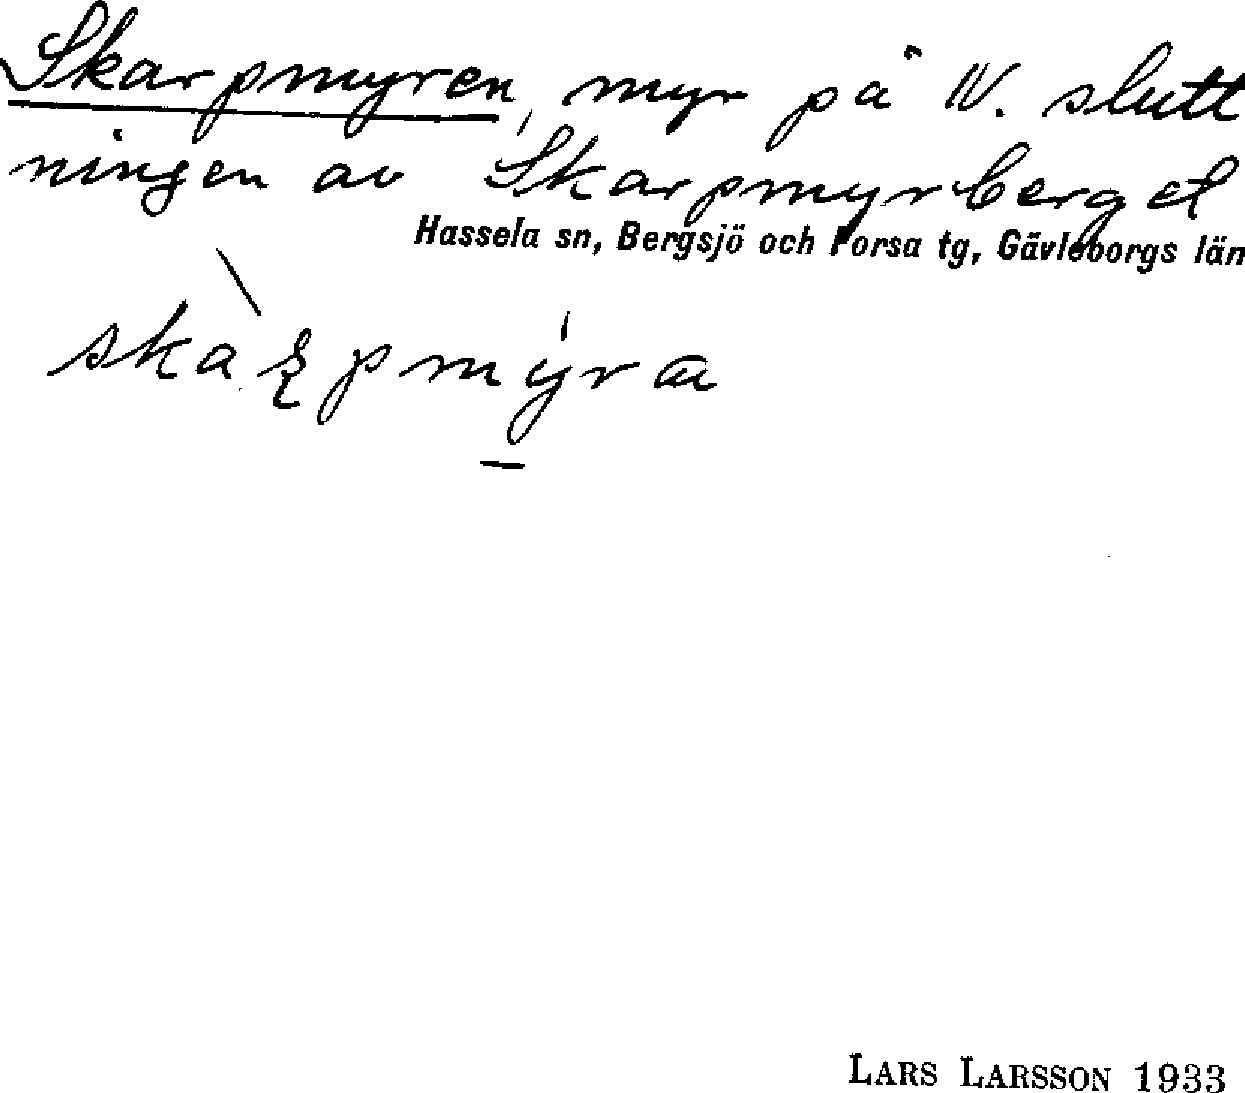 Skarpmyren, myr på V. slutt
ningen av Skarpmyrberget
Hassela sn, Bergsjö och Forsa tg, Gävleborgs län
LARS LARSSON 1933